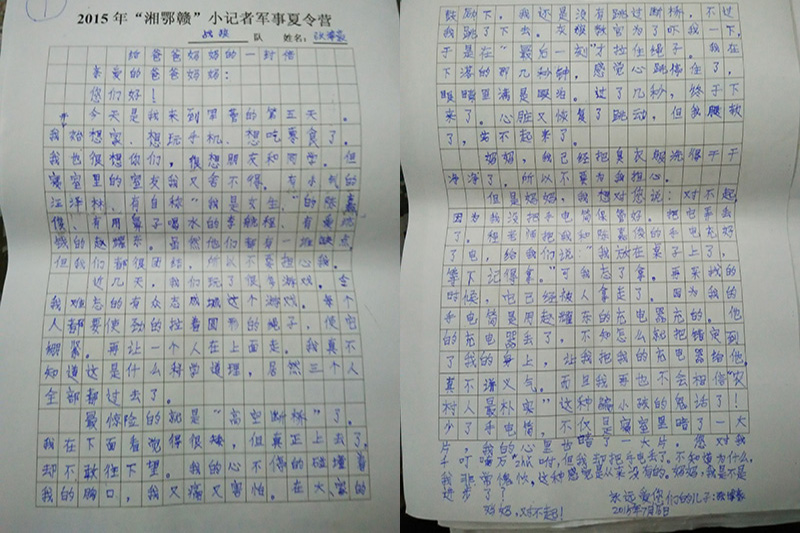 2015年“湘鄂赣”小记者军事夏令营
战狼 队 姓名:
给爸爸妈妈的一封信
亲爱的爸爸妈妈:
你们好!
今天是我来到军营的第五天。
我开始想家,想玩手机,想吃零食了。
我也很想你们,很想朋友和同学。但
寝室里的室友我又舍不得。有小气的
汪洋林、有自称“我是女生,”的陈嘉
俊、有用鼻子喝水的李航程、有爱
的赵耀东。虽然他们都有一堆缺点,
但我们都很团结,所以不要担心我。
这几天,我们玩了很多游戏。令
我难忘的有众志成城这个游戏。每个
人都要使劲的拉着圆形的绳子,使它
绷紧。再让一个人在上面走。我真不
知道这是什么科学道理,居然三个人
全部都过去了。
最惊险的就是“高空断桥”了。
我在下面看觉得很矮,但真正上去了,
却不敢往下望。我的心不停的碰撞着
我的胸口,我又痛又害怕。在大家的
鼓励下,我还是没有跳过断桥,不过
我跳了下去。灰熊教官为了吓我一下,
于是在“最后一刻”才拉住绳子。我在
下落的那几秒钟,感觉心跳停住了,
眼睛里满是眼泪。过了几秒,终于下
来了。心脏又恢复了跳动,但我腿软
了,站不起来了。
妈妈,我已经把臭衣服洗得干干
净净了,所以不要为我担心。
但是妈妈,我想对您说:对不起,
因为我没把手电筒保管好。把它弄丢
了。程老师把我和陈嘉俊的手电充好
了电,给我们说:“我放在桌子上了,
等下记得拿。”可我忘了拿。再来找的
时候,它已经被人拿走了。因为我的
手电筒是用赵耀东的充电器充的。他
的充电器丢了,不知怎么就把错怪到
了我的身上,让我把我的充电器给他,
真不讲义气。而且我再也不会相信“农
村人最朴实”这种骗小孩的鬼话了!
少了手电筒,不仅是寝室里暗了一大
片,我的心里也暗了一大片。您对我
千叮咛万嘱咐,但我却把手电丢了。不知道为什么,
我非常愧疚。这种感觉是从来没有的。妈妈,我是不是
进步了?
永远爱你们的儿子:
妈妈,对不起! 2015年7月